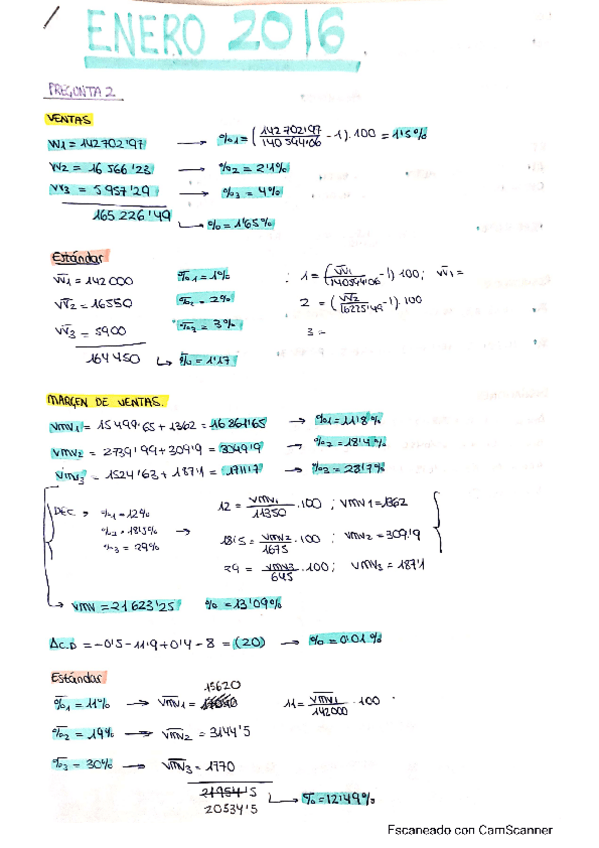 ENERO 2016
PREGUNTA 2
VENTAS
VV1 = 142 702'97 → %1 = (142 702'97 / 140 594'06 - 1) · 100 = 1'5%
VV2 = 16 566'23 → %2 = 2'1%
VV3 = 5 957'29 → %3 = 4%
165 226'49 → % = 1'65%
Estándar
VV1 = 142 000 %1 = 1% : 1 = (VV1 / 140594'06 - 1) 100 ; VV1 =
VV2 = 16550 %2 = 2% 2 = (VV2 / 16225'49 - 1) · 100
VV3 = 5900 %3 = 3% 3 =
164 450 → % = 1'17
MARGEN DE VENTAS.
VMV1 = 15 499'65 + 1362 = 16 861'65 → %1 = 11'8%
VMV2 = 2739'99 + 309'9 = 3049'9 → %2 = 18'4%
VMV3 = 1524'63 + 187'1 = 1711'7 → %3 = 28'7%
DEC → %1 = 12% 12 = VMV1 / 11350 · 100 ; VMV1 = 1362
%2 = 18'5% → 18'5 = VMV2 / 1675 · 100 ; VMV2 = 309'9
%3 = 29% 29 = VMV3 / 645 · 100 ; VMV3 = 187'1
→ VMV = 21 623'25 % = 13'09%
ΔC.D = -0'5 - 11'9 + 0'4 - 8 = (20) → % = 0'01%
Estándar
%1 = 11% → VMV1 = 15620 11 = VMV1 / 142000 · 100
%2 = 19% → VMV2 = 3144'5
%3 = 30% → VMV3 = 1770
21954'5
20534'5 → % = 12'49%
Escaneado con CamScanner